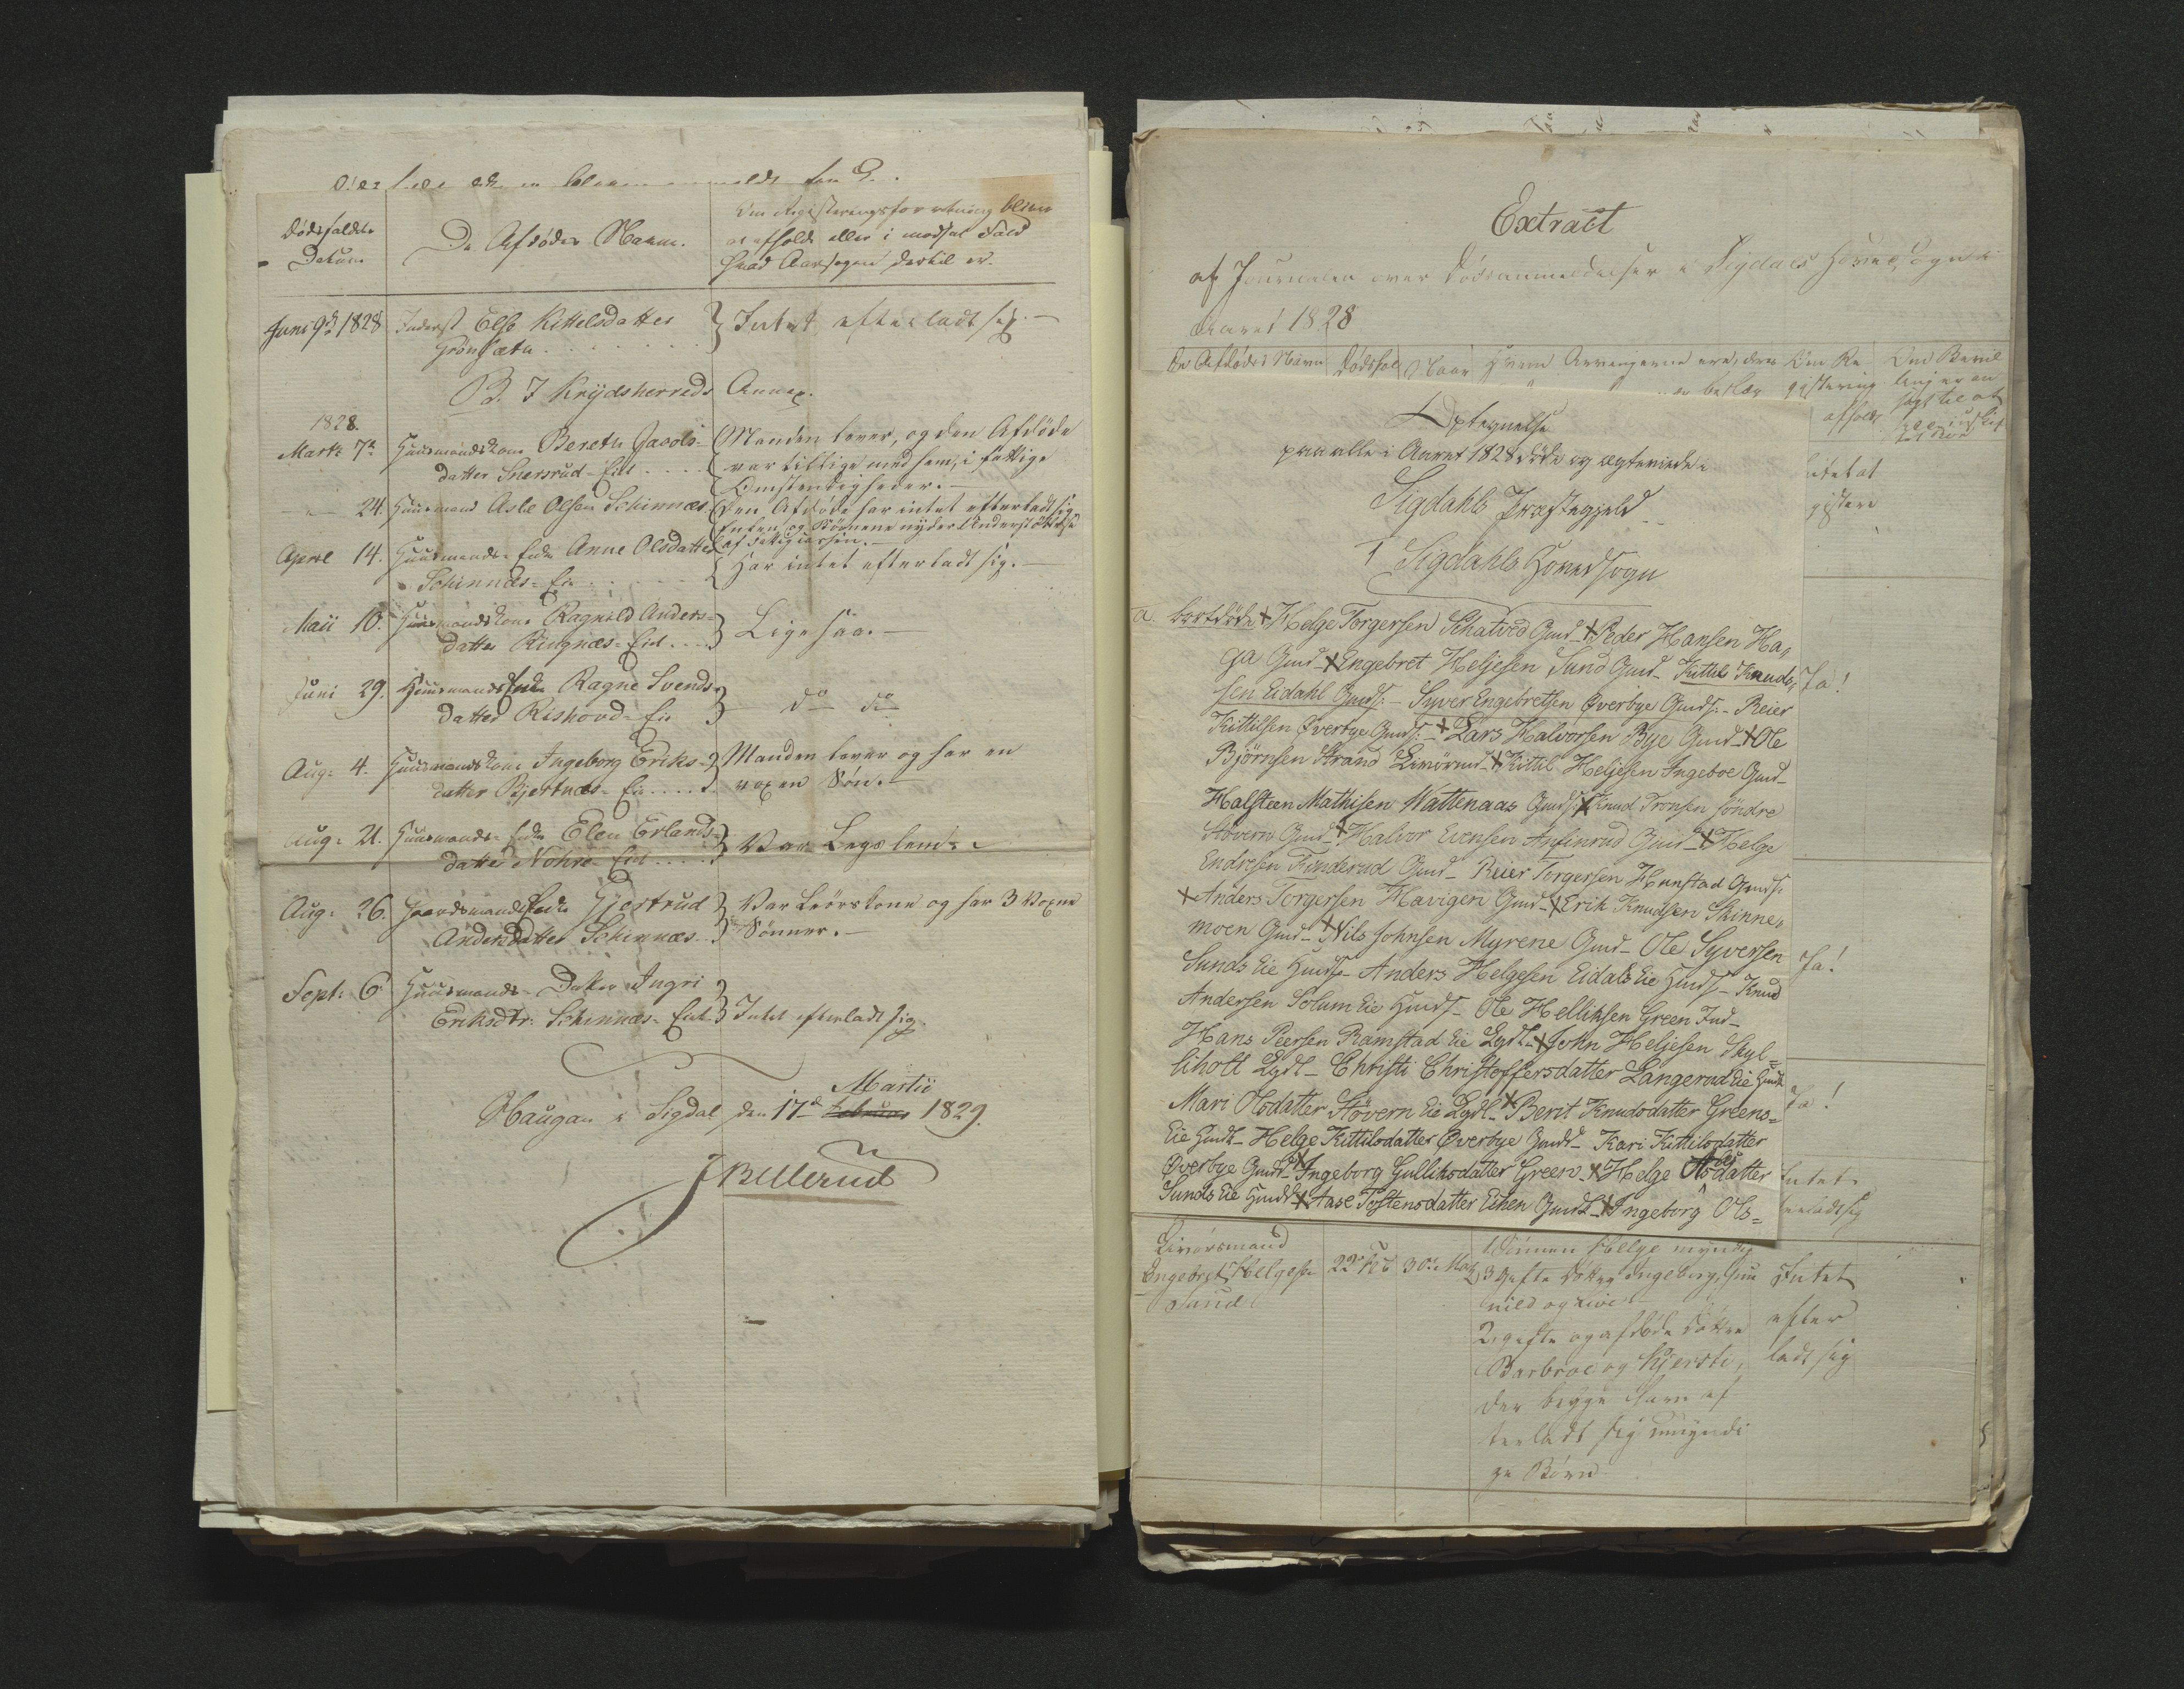 Dødsfaldets
Datum.
De Afdødes Navne.
Om Registeringsforretning bliver
at afholde eller i modsat Fald
hvad Aarsagen dertil er.
Juni 9de 1828
Inderst Else Kittelsdatter
Grønsæta
Intet efterladt sig.
B. I Krydsherreds Annex.
1828
Marts 7de
Huusmandskone Berethe Jacobs-
datter Snersrud-Eiet
Manden lever, og den Afdøde
var tillige med ham, i fattige
Omstændigheder.
24.
Huusmand Asle Olsen Schinnæs
Den Afdøde har intet efterladt sig
Enken og Børnene nyder Understøttelse
af Fattigcassen.
April 14.
Huusmands-Enke Anne Olsdatter
Schinnæs-Eie
Har intet efterladt sig.
Maii 10.
Huusmandskone Ragnild Anders-
datter Ringnæs-Eiet
Ligesaa.
Juni 29.
Huusmands Enke Ragne Svends-
datter Rishovd-Eie
do do
Aug: 4.
Huusmandskone Ingeborg Eriks-
datter Bjertnæs-Eie
Manden lever og har en
voxen Søn.
Aug: 21.
Huusmands-Enke Elen Erlands-
datter Nohre-Eiet
Var Lægslem
Aug: 26.
Gaardmands Enke Gjertrud
Andersdatter Schinnæs
Var Føderkone og har 3 Voxne
Sønner.
Sept: 6
Huusmands-Datter Ingri
Eriksdtr: Schinnæs-Eiet
Intet efterladt sig.
Martii
Haugan i Sigdal, den 17de Februar 1829.
J Bellerud
Extract
af Journalen over Dødsanmeldelser i Sigdals Hoved Sogn i
Aaret 1828
Den Afdødes Navn
Dødsfal
Naar
Hvem Arvingerne ere, deres
Om Re
gistering
afholdt
Om Bevil
ling er an
søgt til at
Optegnelse
paa alle i Aaret 1828 døde og ægteviede i
Sigdahls Præstegjeld
1 Sigdahls Hovedsogn
a. bortdøde + Helge Torgersen Schatvedt Gmd - + Peder Hansen Ha,
ga Gmd - + Engebret Heljesen Sund Gmd - Kittil Knuds,
sen Eidahl Gmds: - Syver Engebretsen Øverbye Gmds: - Beier
Kittilsen Øverbye Gmds: - + Lars Halvorsen Bye Gmd - + Ole
Björnsen Strand Livörmd - + Kittil Heljesen Ingeboe Gmd -
Halsteen Mathisen Wattenaas Gmds: + Knud Tronsen söndre
Stövern Gmd - + Halvor Evensen Anfinrud Gmd - + Helge
Endresen Funderud Gmd - Reier Torgersen Hunstad Gmds:
+ Anders Torgersen Havigen Gmd - + Erik Knudsen Skinne,
moen Gmd - + Nils Johnsen Myrene Gmd - Ole Syversen
Sunds Eie Hmds - Anders Helgesen Eidals Eie Hmds - Knud
Andersen Solum Eie Hmds - Ole Helliksen Green Ind -
Hans Peersen Ramstad Eie Lgdl - + John Heljesen Skyl=
liholt Lgdl - Christi Christoffersdatter Langerud Eie Hmdk
Mari Olsdatter Stövern Eie Lgdl - + Berit Knudsdatter Greens=
Eie Hmdk - Helge Kittilsdatter Øverbye Gmdd - Kari Kittilsdatter
Øverbye Gmdd - + Ingeborg Gulliksdatter Green - + Helge Olsdatter
Sunds Eie Hmdd + Aase Tostensdatter Eken Gmdk - + Ingeborg Ols=
Ja!
Ja!
Ja!
Intet
terladt sig
Livørsmand
Engebret Helgesen
Sund
22de
30te
Helge myndig
3 gifte Døtre Ingeborg, Gun
nild og
2 gifte og afdøde Døttre
Barbroe og Kjersti,
der begge have ef
terladt sig umyndi
ge Børn
Intet
efter
ladt sig